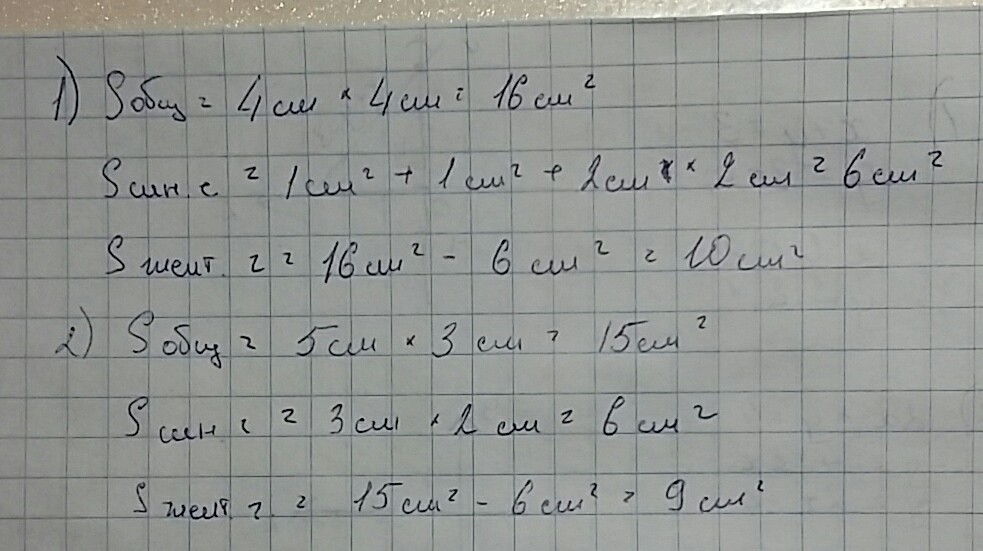 1) Sобщ = 4 см × 4 см = 16 см²
Sсин. с = 1 см² + 1 см² + 2 см × 2 см = 6 см²
Sжелт. г = 16 см² - 6 см² = 10 см²
2) Sобщ = 5 см × 3 см = 15 см²
Sсин с = 3 см × 2 см = 6 см²
Sжелт. г. = 15 см² - 6 см² = 9 см²